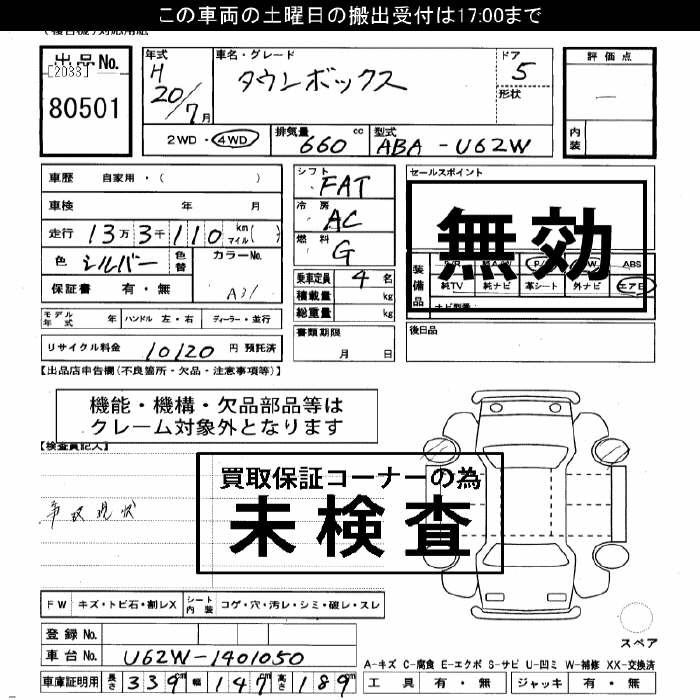 この車両の土曜日の搬出受付は17:00まで
出品No.
[2033]
80501
年式
H
20/7月
車名・グレード
タウンボックス
ドア
5
形状
評価点
内装
2WD・4WD
排気量
660 cc
型式
ABA-U62W
車歴 自家用・( )
車検 年 月
走行 13万3千110 km マイル( )
色 シルバー 色替
カラーNo.
A31
保証書 有・無
シフト
FAT
冷房
AC
燃料
G
乗車定員 4名
積載量 kg
総重量 kg
セールスポイント
無効
装備品
ABS
純TV 純ナビ 革シート 外ナビ エアB
モデル年式 年 ハンドル 左・右 ディーラー・並行
書類期限
月 日
後日品
リサイクル料金 10120 円 預託済
【出品店申告欄(不良箇所・欠品・注意事項等)】
機能・機構・欠品部品等は
クレーム対象外となります
【検査員記入】
買取保証コーナーの為
未検査
事故現状
FW キズ・トビ石・割レX シート内装 コゲ・穴・汚レ・シミ・破レ・スレ
登録No.
車台No. U62W-1401050
車庫証明用 長さ 339cm 幅 147cm 高さ 189cm
スペア
A-キズ C-腐食 E-エクボ S-サビ U-凹ミ W-補修 XX-交換済
工具 有・無 ジャッキ 有・無